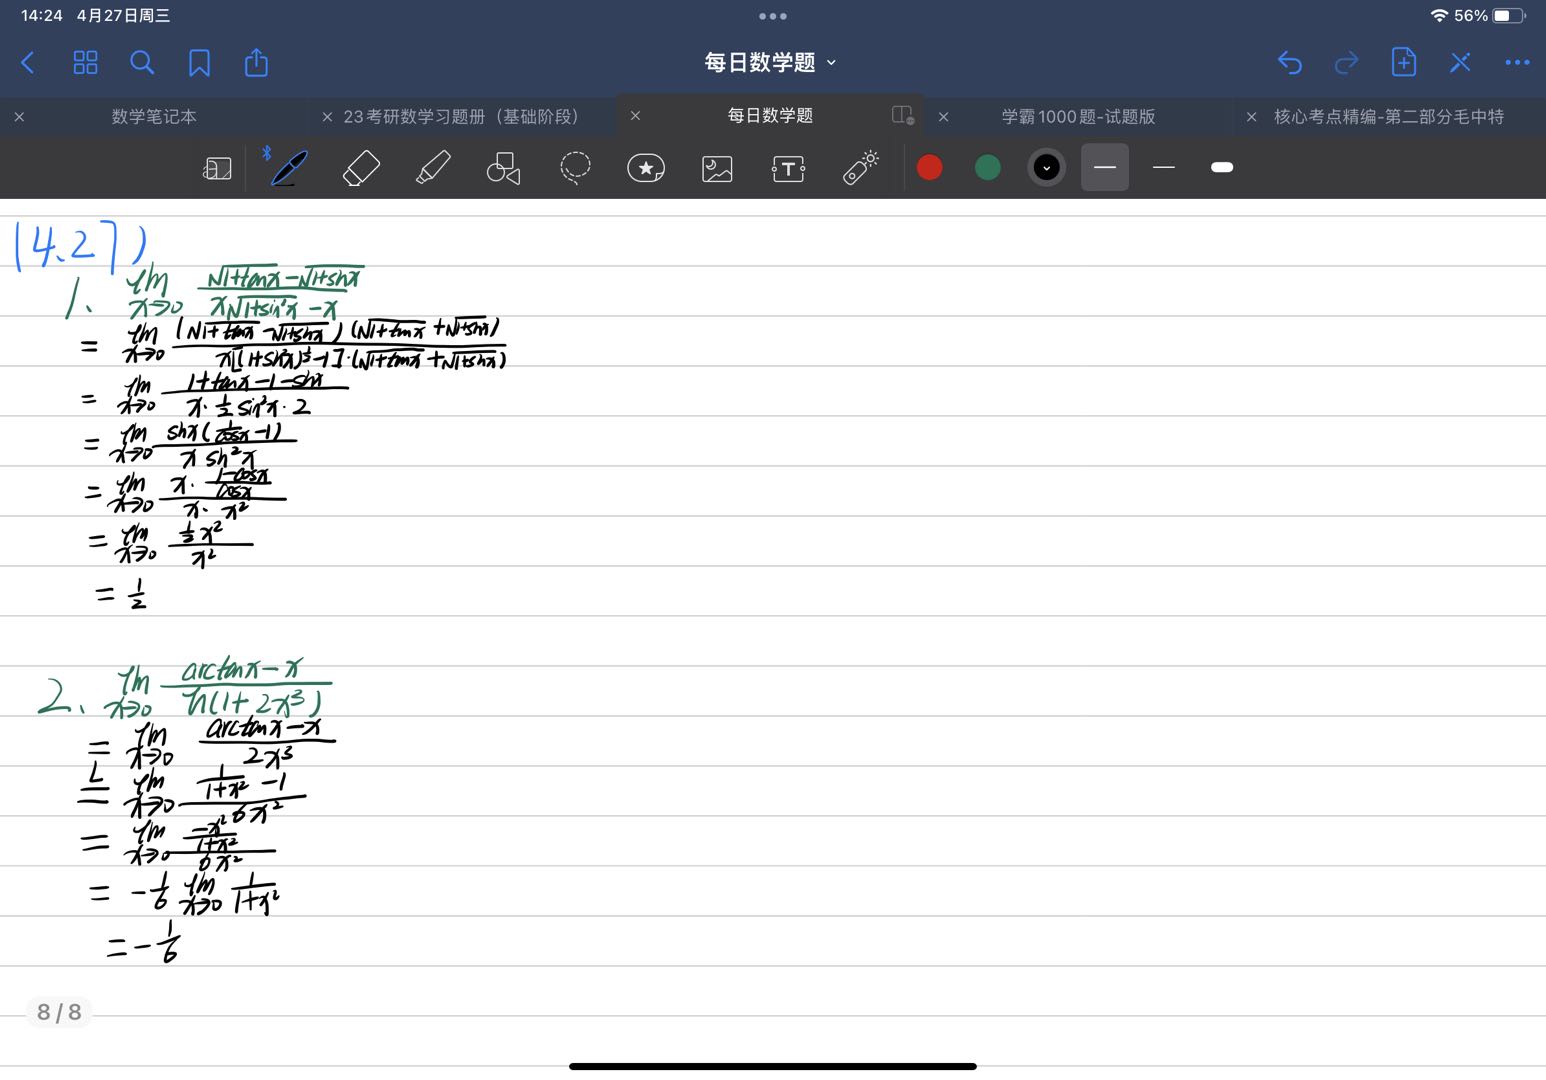 14:24 4月27日周三
56%
每日数学题
数学笔记本
23考研数学习题册（基础阶段）
每日数学题
学霸1000题-试题版
核心考点精编-第二部分毛中特
T
(4.27)
1. lim x→0 (√(1+tanx) - √(1+sinx)) / (x√(1+sin²x) - x)
= lim x→0 (√(1+tanx) - √(1+sinx)) (√(1+tanx) + √(1+sinx)) / x[(1+sin²x)^½ - 1]·(√(1+tanx) + √(1+sinx))
= lim x→0 (1+tanx-1-sinx) / (x·½ sin²x·2)
= lim x→0 sinx(1/cosx - 1) / (x sin²x)
= lim x→0 (x·(1-cosx)/cosx) / (x·x²)
= lim x→0 ½x² / x²
= 1/2
2. lim x→0 (arctanx - x) / ln(1+2x³)
= lim x→0 (arctanx - x) / 2x³
L= lim x→0 (1/(1+x²) - 1) / 6x²
= lim x→0 (-x²/(1+x²)) / 6x²
= -1/6 lim x→0 1/(1+x²)
= -1/6
8/8